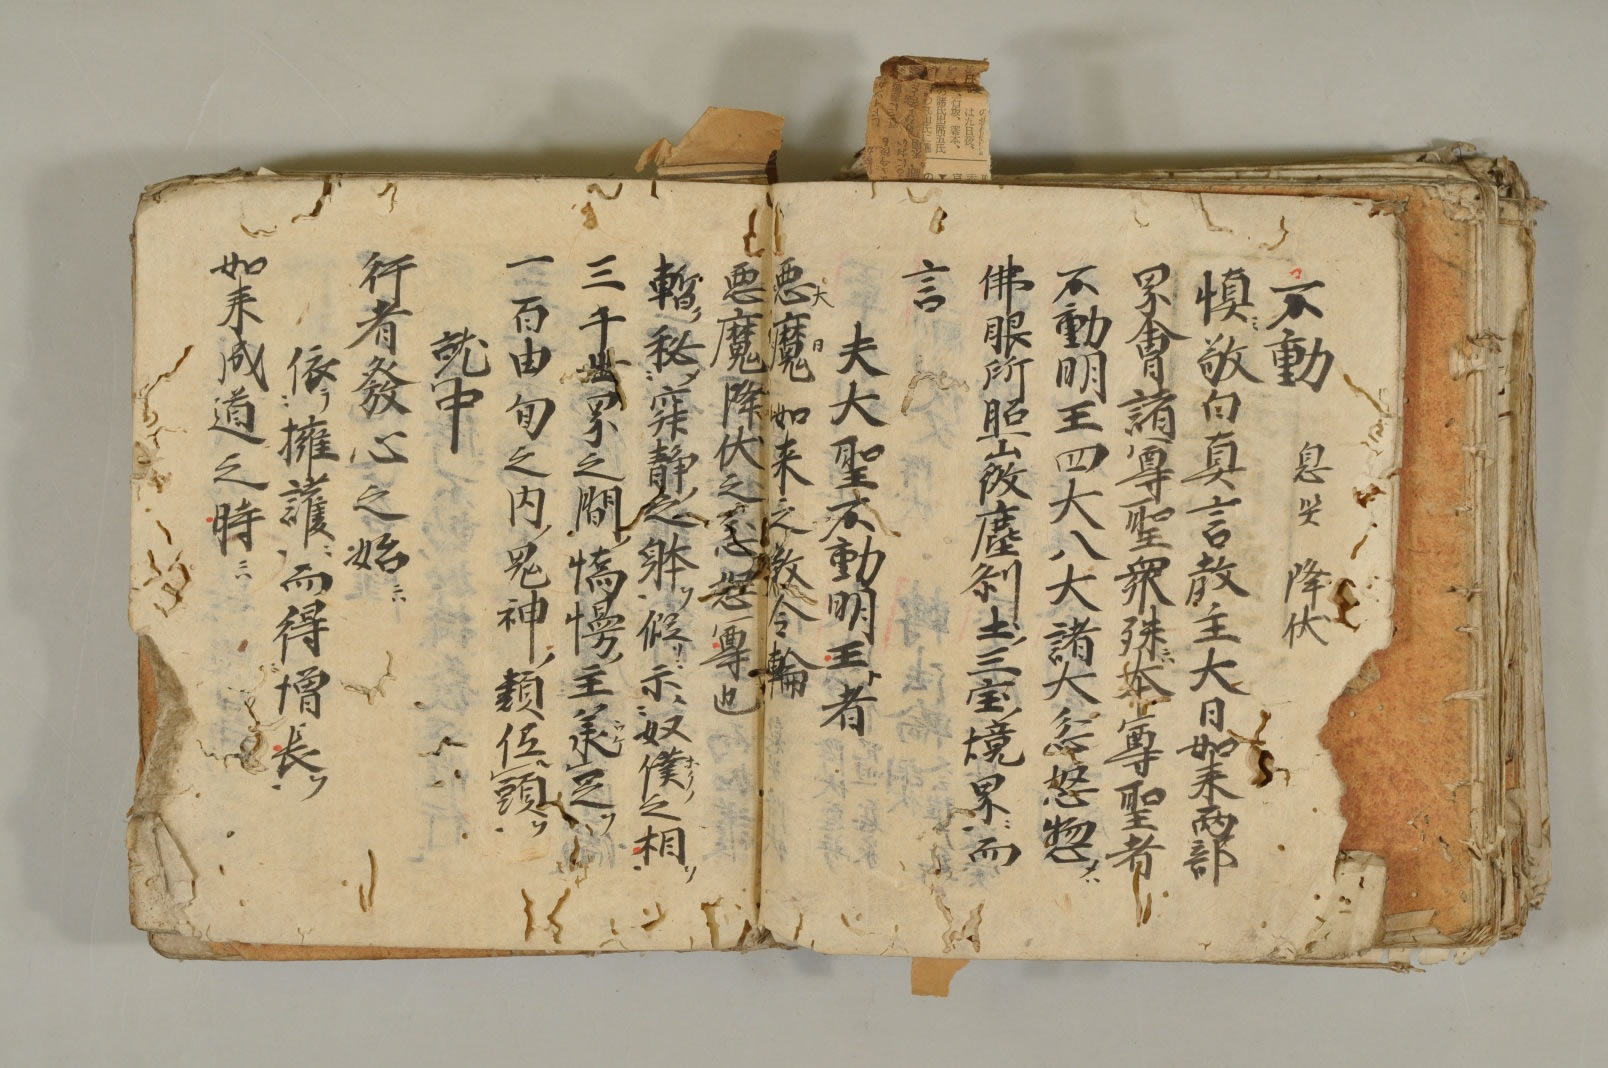 不動 息災 降伏
慎敬白真言教主大日如来両部
界會諸尊聖衆殊ニハ本尊聖者
不動明王四大八大諸大忿怒惣ハ
佛眼所照微塵刹土三宝境界ニ而
言
夫大聖不動明王ト者
大日如来之教令輪
悪魔降伏之忿怒尊也
暫ク秘シ寂静之躰ヲ假リニ示シ奴僕之相ヲ
三千世界之間憍慢主業定ヲ
一百由旬之内鬼神類低頭ヲ
就中
行者發心之始ニハ
依テ擁護ニ而得増長ヲ
如来成道之時ニ